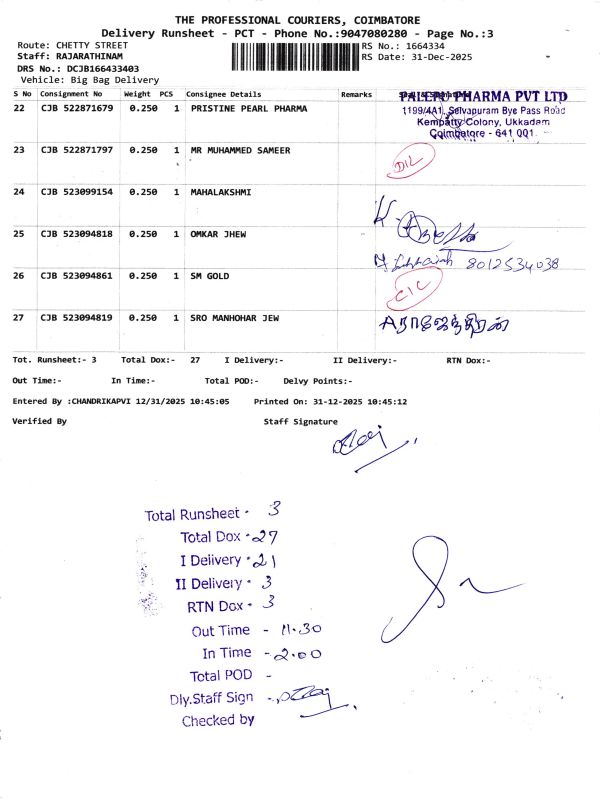 THE PROFESSIONAL COURIERS, COIMBATORE
Delivery Runsheet - PCT - Phone No.:9047080280 - Page No.:3
Route: CHETTY STREET
RS No.: 1664334
Staff: RAJARATHINAM
RS Date: 31-Dec-2025
DRS No.: DCJB166433403
Vehicle: Big Bag Delivery
S No Consignment No Weight PCS Consignee Details Remarks
22 CJB 522871679 0.250 1 PRISTINE PEARL PHARMA
PHARMA PVT LTD
1199/4A1, Selvapuram Bye Pass Road
Kempatty Colony, Ukkadam
Coimbatore - 641 001.
23 CJB 522871797 0.250 1 MR MUHAMMED SAMEER
D/L
24 CJB 523099154 0.250 1 MAHALAKSHMI
25 CJB 523094818 0.250 1 OMKAR JHEW
8012534038
26 CJB 523094861 0.250 1 SM GOLD
C/L
27 CJB 523094819 0.250 1 SRO MANHOHAR JEW
Tot. Runsheet:- 3 Total Dox:- 27 I Delivery:- II Delivery:- RTN Dox:-
Out Time:- In Time:- Total POD:- Delvy Points:-
Entered By :CHANDRIKAPVI 12/31/2025 10:45:05 Printed On: 31-12-2025 10:45:12
Verified By Staff Signature
Total Runsheet - 3
Total Dox - 27
I Delivery - 21
II Delivery - 3
RTN Dox - 3
Out Time - 11.30
In Time - 2.00
Total POD -
Dly.Staff Sign -
Checked by